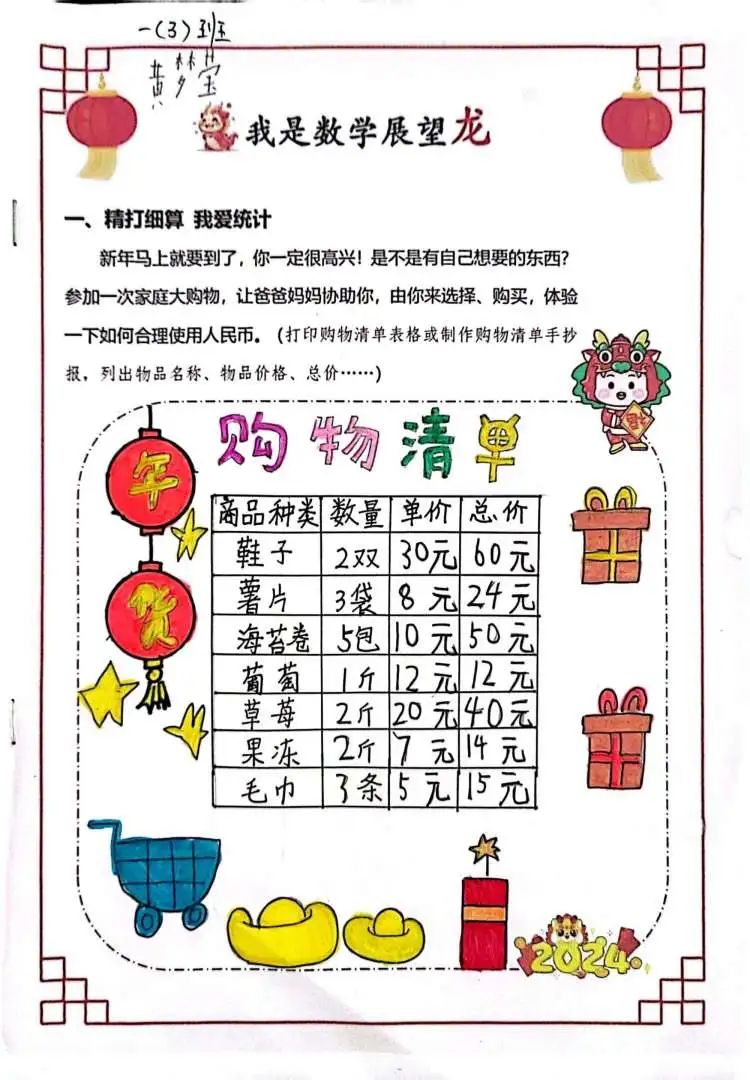 一(3)班
黄梦莹
我是数学展望龙
一、精打细算 我爱统计
新年马上就要到了，你一定很高兴！是不是有自己想要的东西？
参加一次家庭大购物，让爸爸妈妈协助你，由你来选择、购买，体验
一下如何合理使用人民币。（打印购物清单表格或制作购物清单手抄
报，列出物品名称、物品价格、总价……）
购物清单
年
货
商品种类 数量 单价 总价
鞋子 2双 30元 60元
薯片 3袋 8元 24元
海苔卷 5包 10元 50元
葡萄 1斤 12元 12元
草莓 2斤 20元 40元
果冻 2斤 7元 14元
毛巾 3条 5元 15元
2024